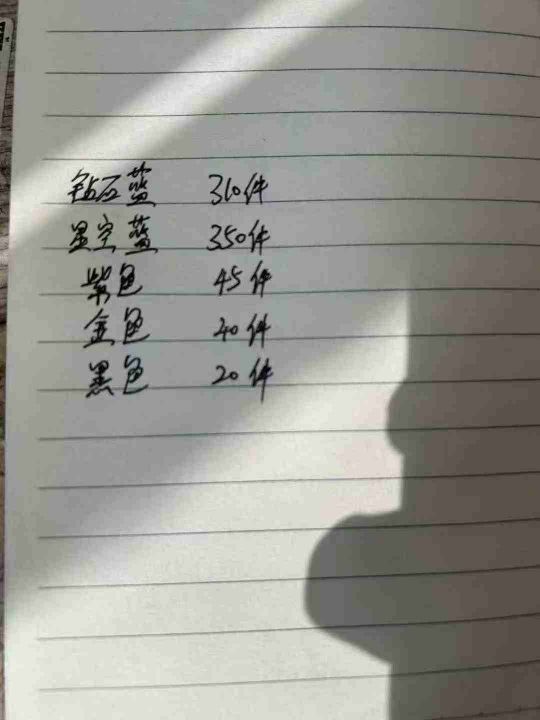 钻石蓝 310件
星空蓝 350件
紫色 45件
金色 20件
黑色 20件